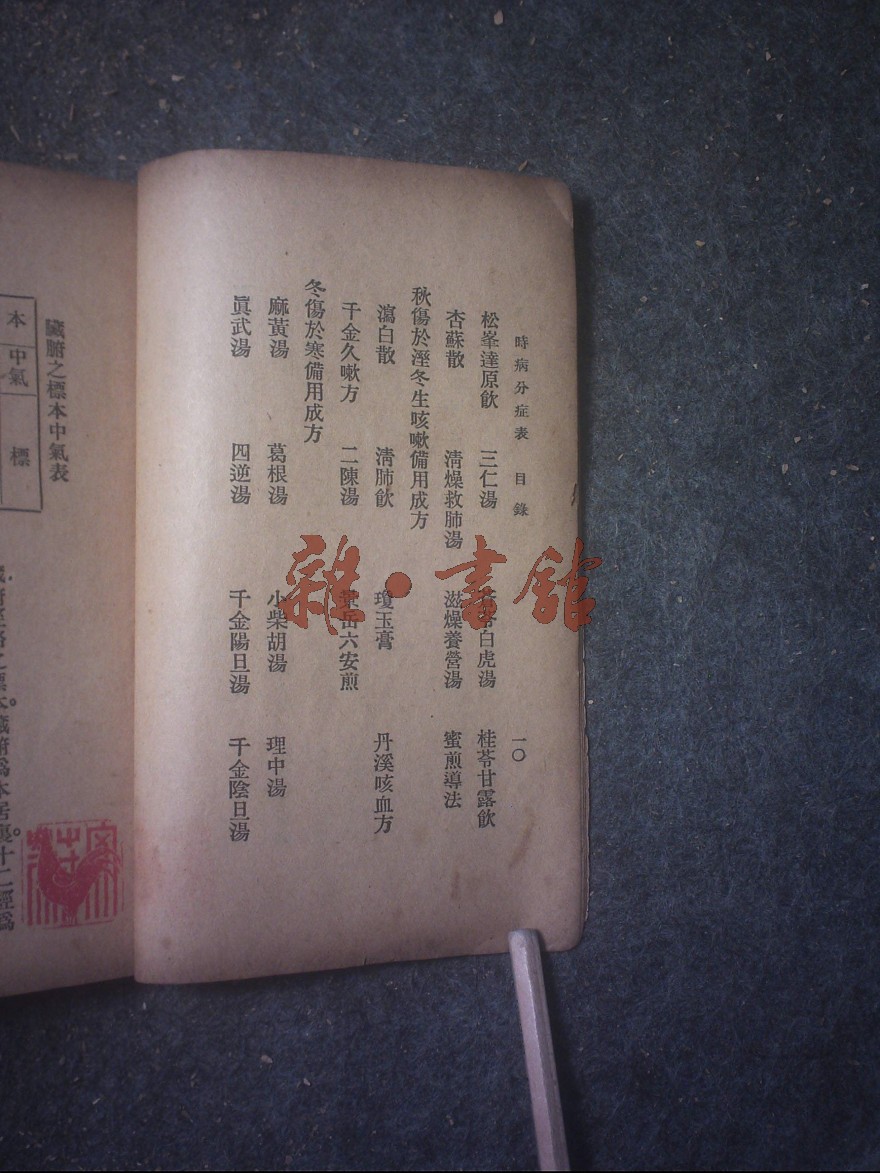 時病分症表 目錄 一〇
松峯達原飲 三仁湯 苓白虎湯 桂苓甘露飲
杏蘇散 清燥救肺湯 滋燥養營湯 蜜煎導法
秋傷於溼冬生咳嗽備用成方
瀉白散 清肺飲 瓊玉膏 丹溪咳血方
千金久嗽方 二陳湯 景岳六安煎
冬傷於寒備用成方
麻黃湯 葛根湯 小柴胡湯 理中湯
眞武湯 四逆湯 千金陽旦湯 千金陰旦湯
臟腑之標本中氣表
本 中氣 標
之標本臟腑爲本居裏十二經爲
雜·書館